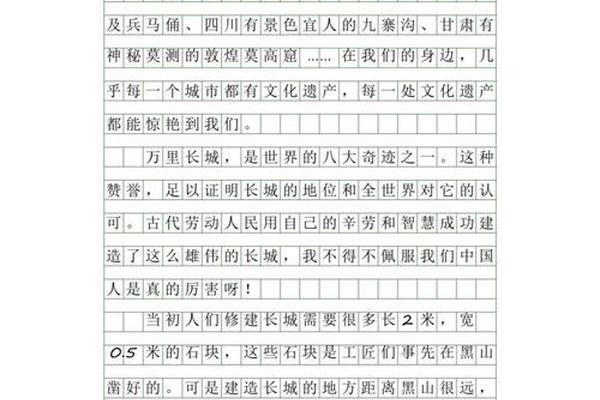 及兵马俑、四川有景色宜人的九寨沟、甘肃有
神秘莫测的敦煌莫高窟……在我们的身边，几
乎每一个城市都有文化遗产，每一处文化遗产
都能惊艳到我们。
万里长城，是世界的八大奇迹之一。这种
赞誉，足以证明长城的地位和全世界对它的认
可。古代劳动人民用自己的辛劳和智慧成功建
造了这么雄伟的长城，我不得不佩服我们中国
人是真的厉害呀！
当初人们修建长城需要很多长2米，宽
0.5米的石块，这些石块是工匠们事先在黑山
凿好的。可是建造长城的地方距离黑山很远，